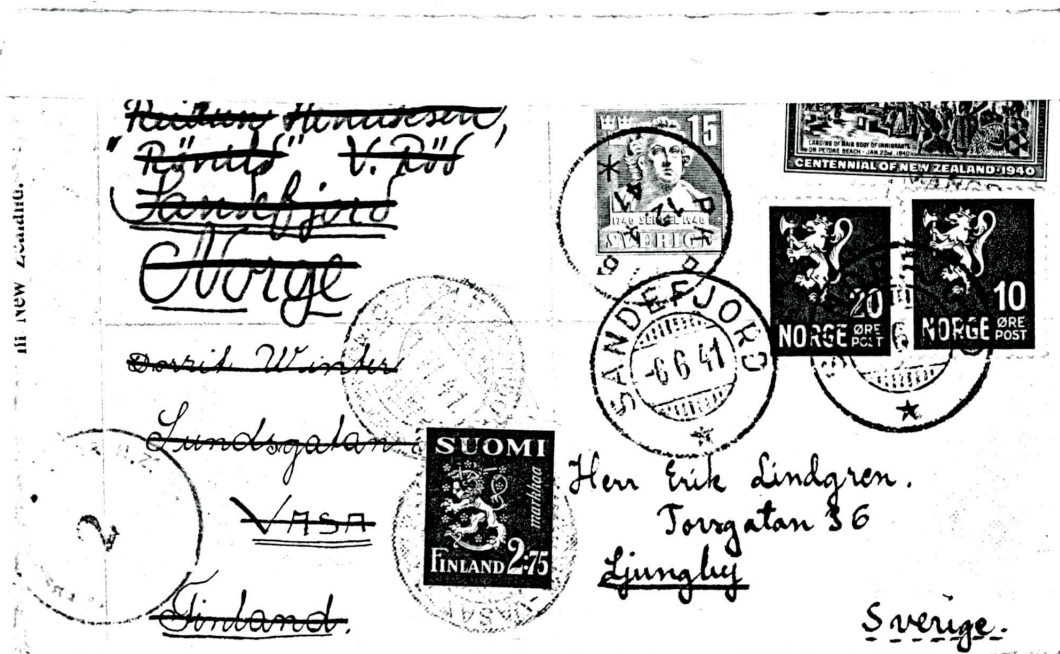 Reidun Henriksen,
"Rönild" V. Röd
Sandefjord
Norge
Dorrit Winter
Lundsgatan
VASA
Finland.
in New Zealand.
15
1740 SERGEL 1940
SVERIGE
12 41
LANDING OF MAIN BODY OF IMMIGRANTS
ON PETONE BEACH - JAN 22nd, 1840
CENTENNIAL OF NEW ZEALAND·1940
20
NORGE ØRE
POST
10
NORGE ØRE
POST
SANDEFJORD
-6 6 41
SUOMI
markkaa
FINLAND 2:75
VASA
2
Herr Erik Lindgren.
Torggatan 36
Ljungby
Sverige.